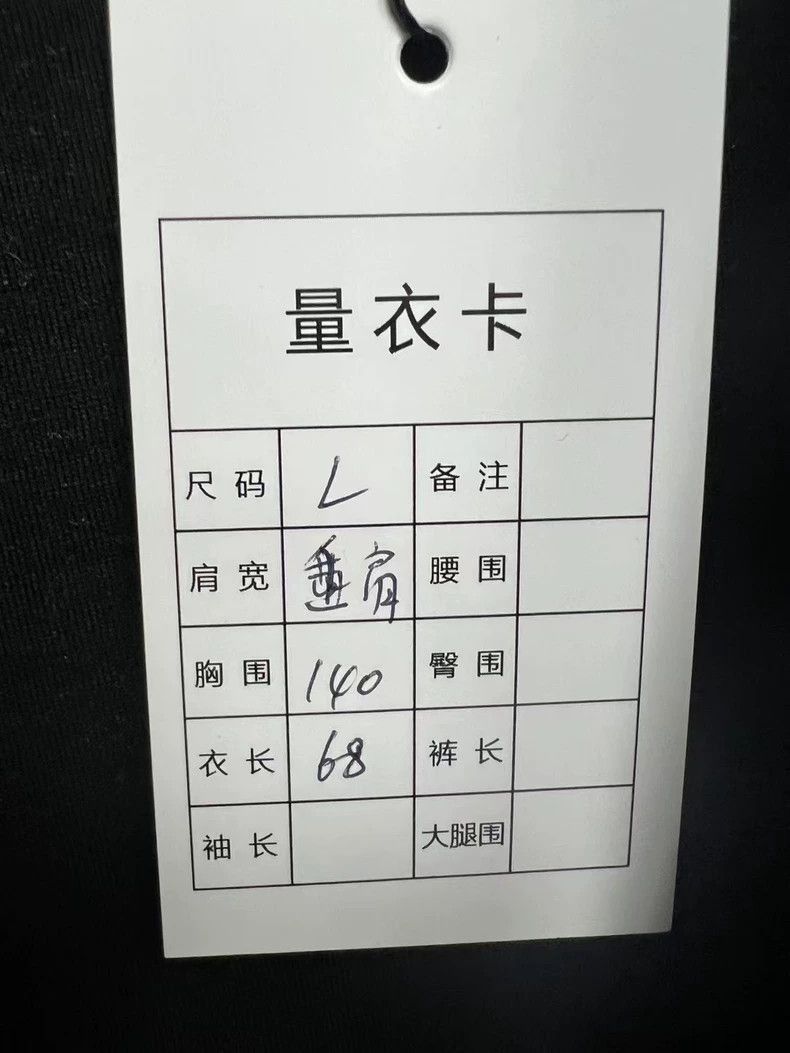 量衣卡
尺码 L 备注
肩宽 垂肩 腰围
胸围 140 臀围
衣长 68 裤长
袖长 大腿围